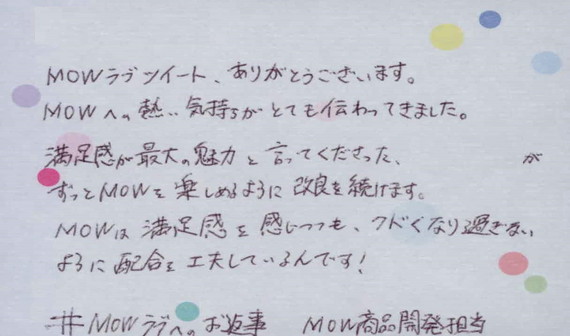 MOWラブツイート、ありがとうございます。
MOWへの熱い気持ちがとても伝わってきました。
満足感が最大の魅力と言ってくださった、 が
ずっとMOWを楽しめるように改良を続けます。
MOWは満足感を感じつつも、クドくなり過ぎない
ように配合を工夫しているんです!
#MOWラブへのお返事 MOW商品開発担当